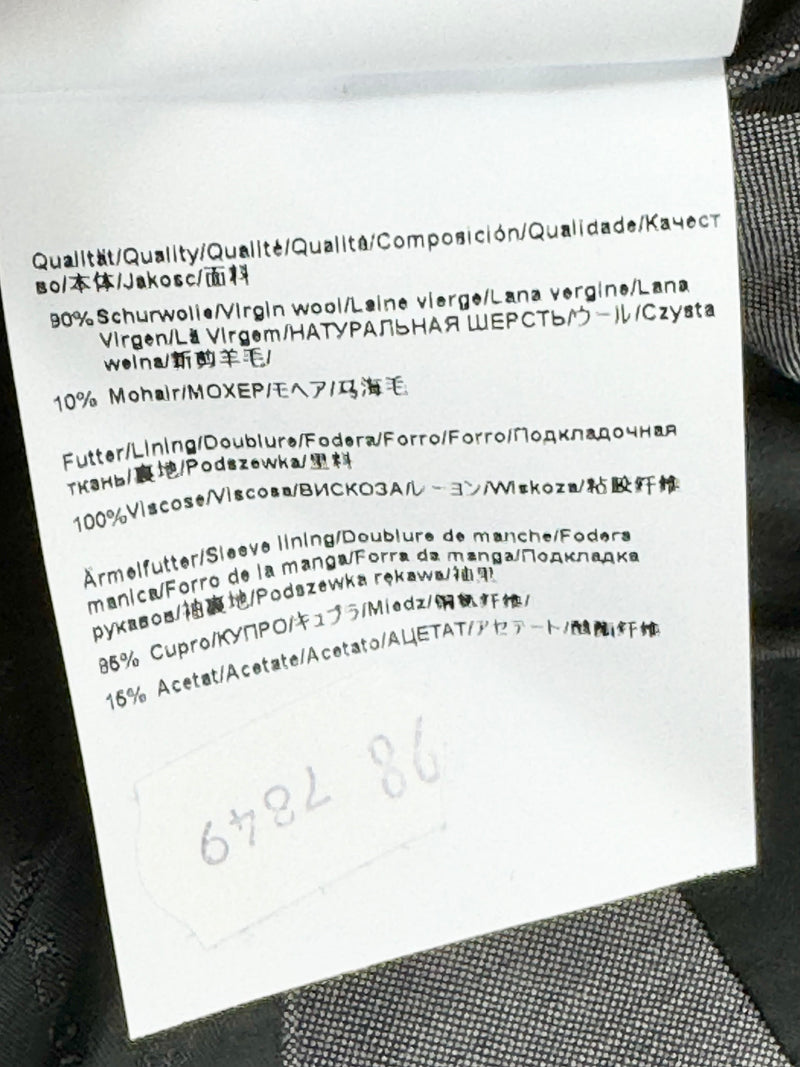 Qualität/Quality/Qualité/Qualità/Composición/Qualidade/Качест
во/本体/Jakosc/面料
90% Schurwolle/Virgin wool/Laine vierge/Lana vergine/Lana
Virgen/Lã Virgem/НАТУРАЛЬНАЯ ШЕРСТЬ/ウール/Czysta
welna/新剪羊毛/
10% Mohair/МОХЕР/モヘア/马海毛
Futter/Lining/Doublure/Fodera/Forro/Forro/Подкладочная
ткань/裏地/Podszewka/里料
100% Viscose/Viscosa/ВИСКОЗА/レーヨン/Wiskoza/粘胶纤维
Ärmelfutter/Sleeve lining/Doublure de manche/Fodera
manica/Forro de la manga/Forra da manga/Подкладка
рукавов/袖裏地/Podszewka rękawa/袖里
85% Cupro/КУПРО/キュプラ/Miedz/铜氨纤维/
15% Acetat/Acetate/Acetato/АЦЕТАТ/アセテート/醋酯纤维
98 7849